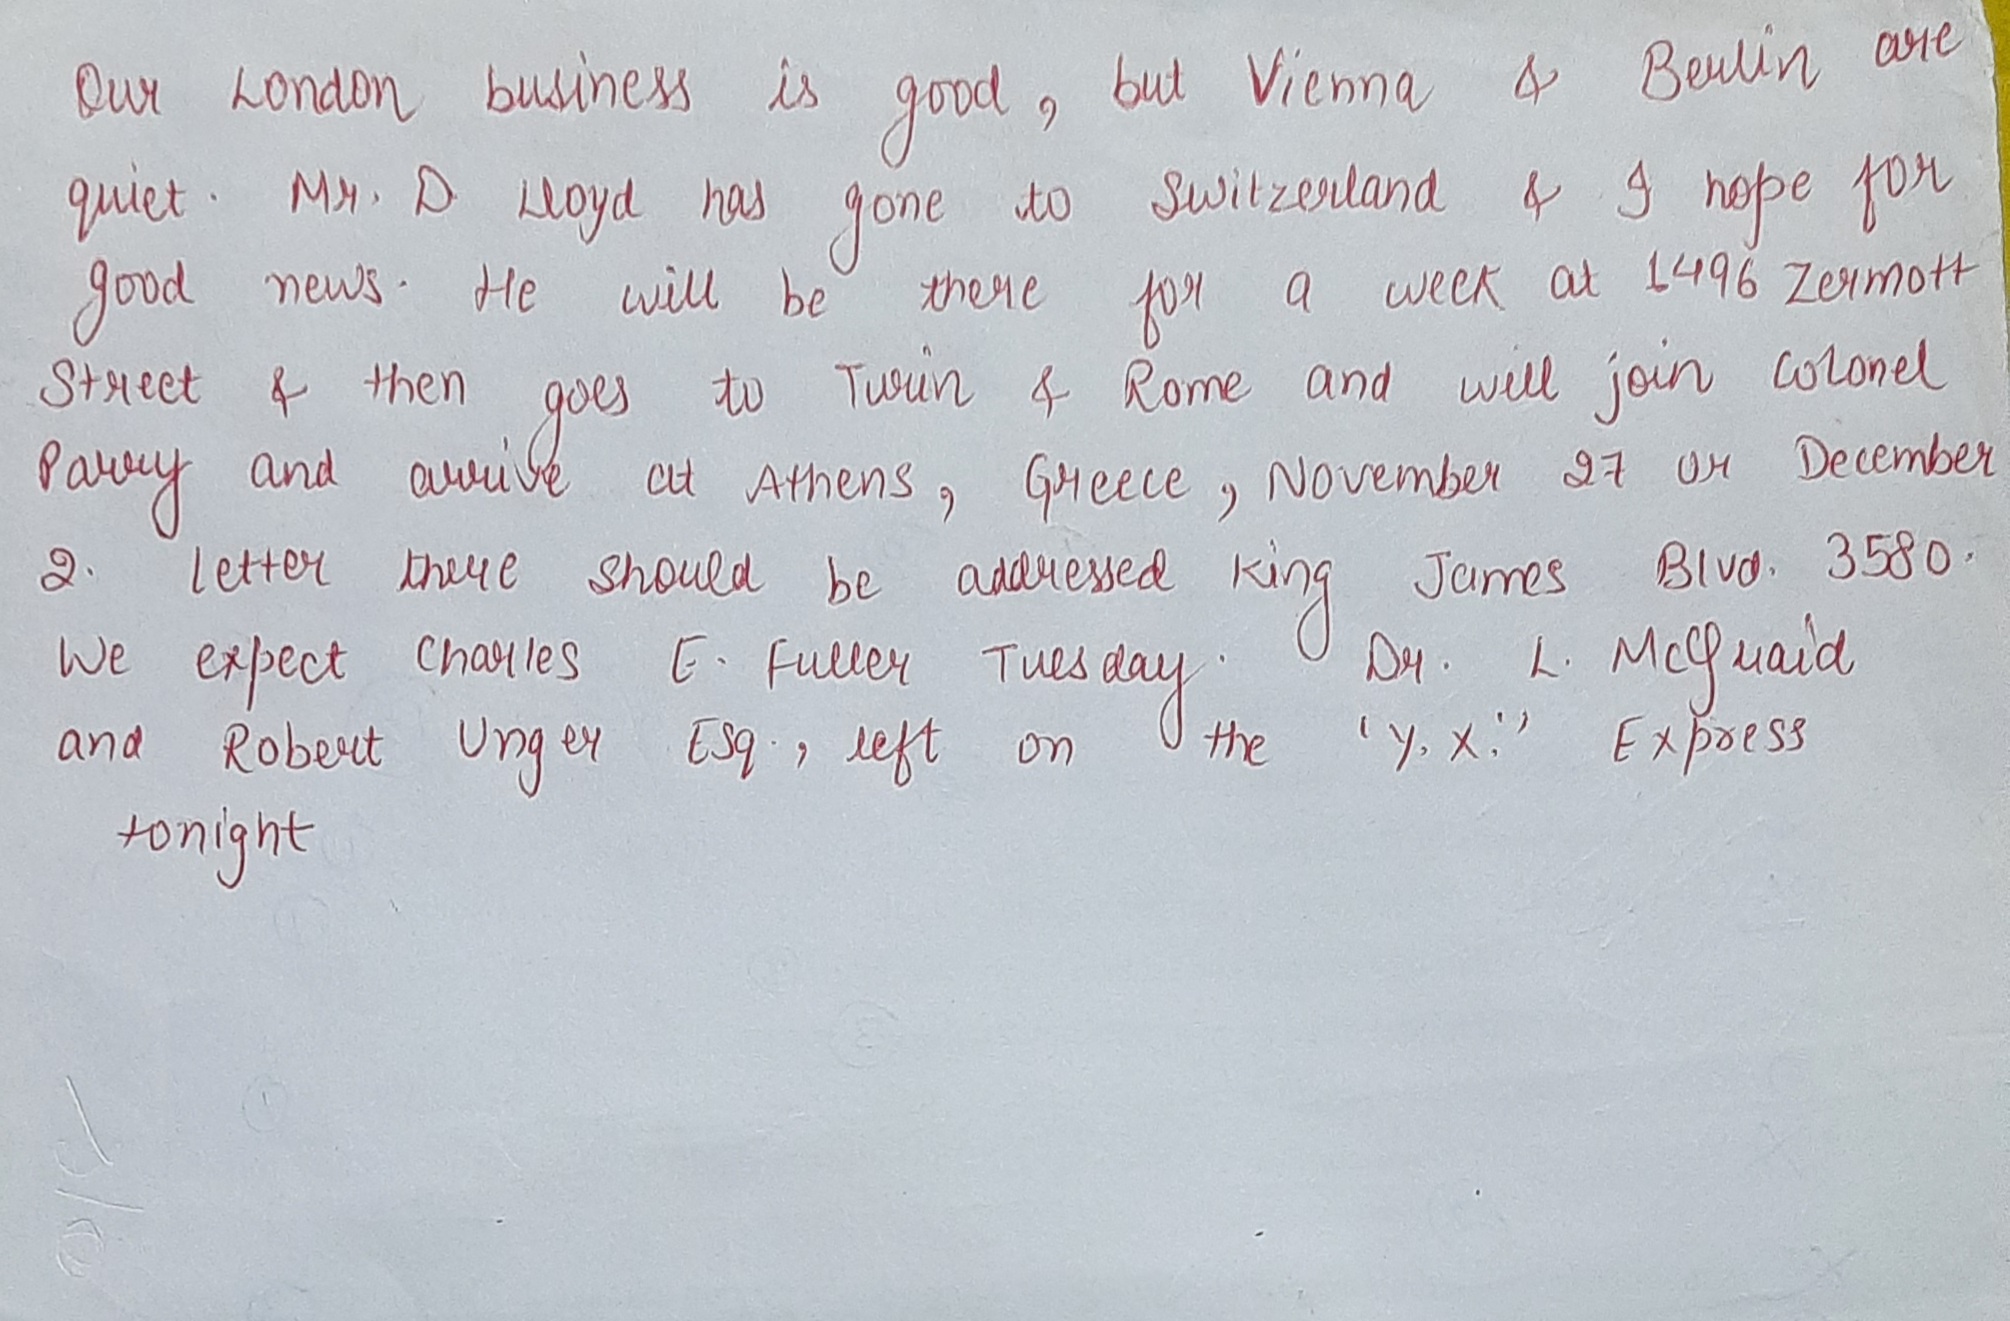 Our London business is good, but Vienna & Berlin are
quiet. Mr. D Lloyd has gone to Switzerland & I hope for
good news. He will be there for a week at 1496 Zermott
Street & then goes to Turin & Rome and will join Colonel
Parry and arrive at Athens, Greece, November 27 or December
2. letter there should be addressed King James Blvd. 3580.
We expect Charles E. Fuller Tuesday. Dr. L. McQuaid
and Robert Unger Esq., left on the 'Y.X.'' Express
tonight